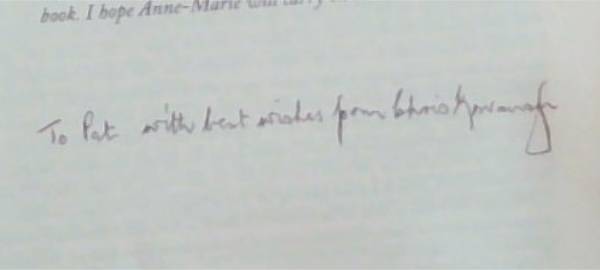 book. I hope Anne-Marie will carry
To Pat with best wishes from Chris Kavanagh